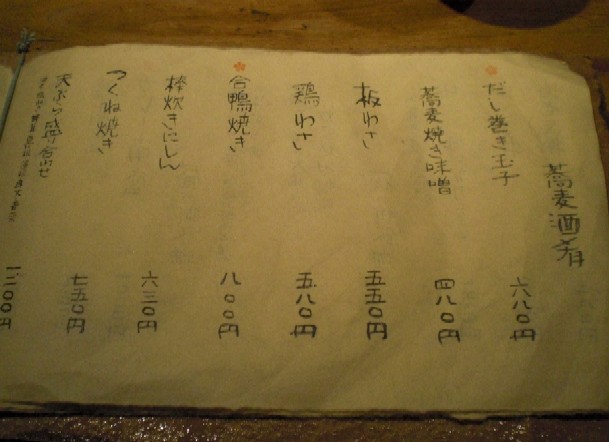 蕎麦酒肴
だし巻き玉子 六八〇円
蕎麦焼き味噌 四八〇円
板わさ 五五〇円
鶏わさ 五八〇円
合鴨焼き 八〇〇円
棒炊きにしん 六三〇円
つくね焼き 七五〇円
天ぷら盛り合わせ 一二〇〇円